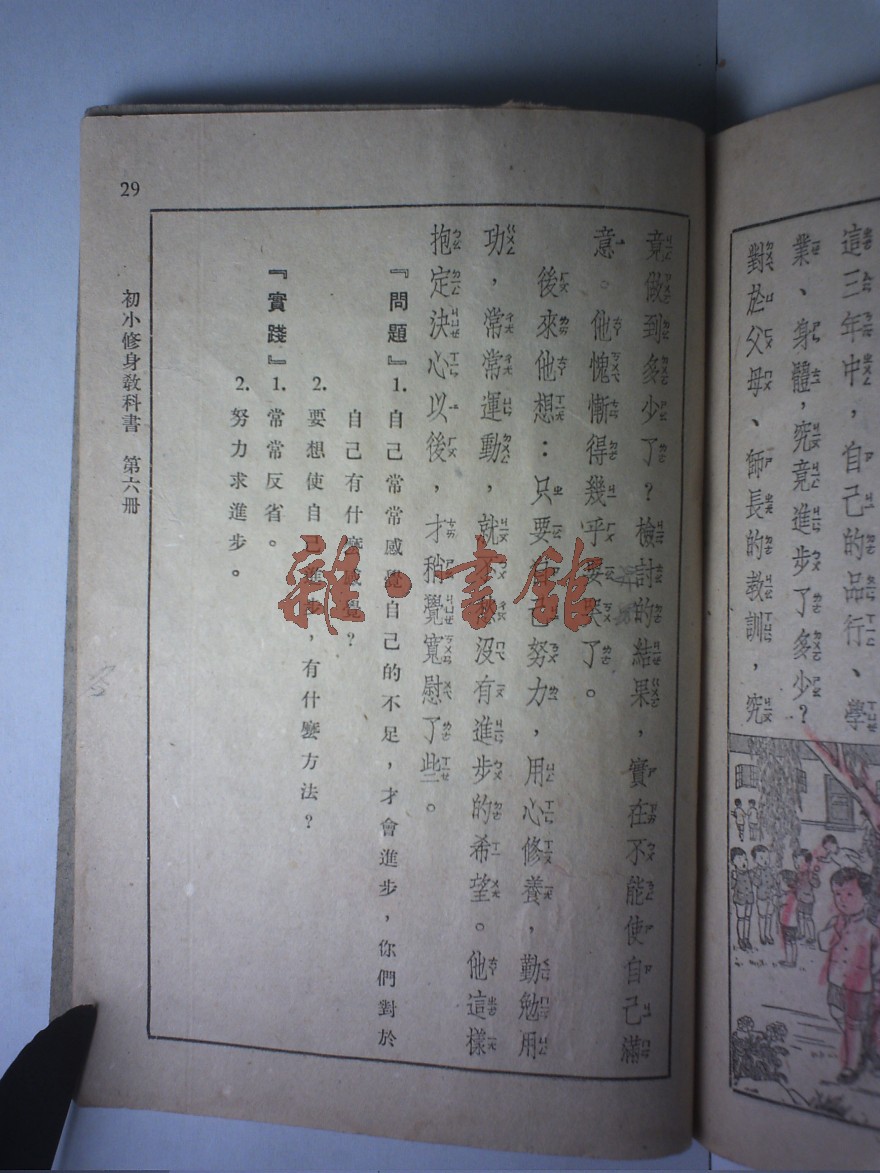 這三年中，自己的品行、學
業、身體，究竟進步了多少？
對於父母、師長的教訓，究
竟做到多少了？檢討的結果，實在不能使自己滿
意。他愧慚得幾乎要哭了。
後來他想：只要自己努力，用心修養，勤勉用
功，常常運動，就不愁沒有進步的希望。他這樣
抱定決心以後，才稍覺寬慰了些。
『問題』1.自己常常感覺自己的不足，才會進步，你們對於
自己有什麼感覺？
2.要想使自己進步，有什麼方法？
『實踐』1.常常反省。
2.努力求進步。
初小修身教科書 第六册
29
雜·書館